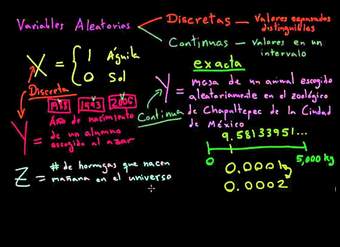 Variables Aleatorias
Discretas – Valores separados
distinguibles
Continuas – valores en un
intervalo
exacta
X = { 1 Águila
0 Sol
Discreta
1985 1993 2006
Y = Año de nacimiento
de un alumno
escogido al azar
Y = masa de un animal escogido
aleatoriamente en el zoológico
de Chapultepec de la Ciudad
de México
Continua
9.58133951...
0 5,000 kg
0.000 kg
0.0002
Z = # de hormigas que nacen
mañana en el universo